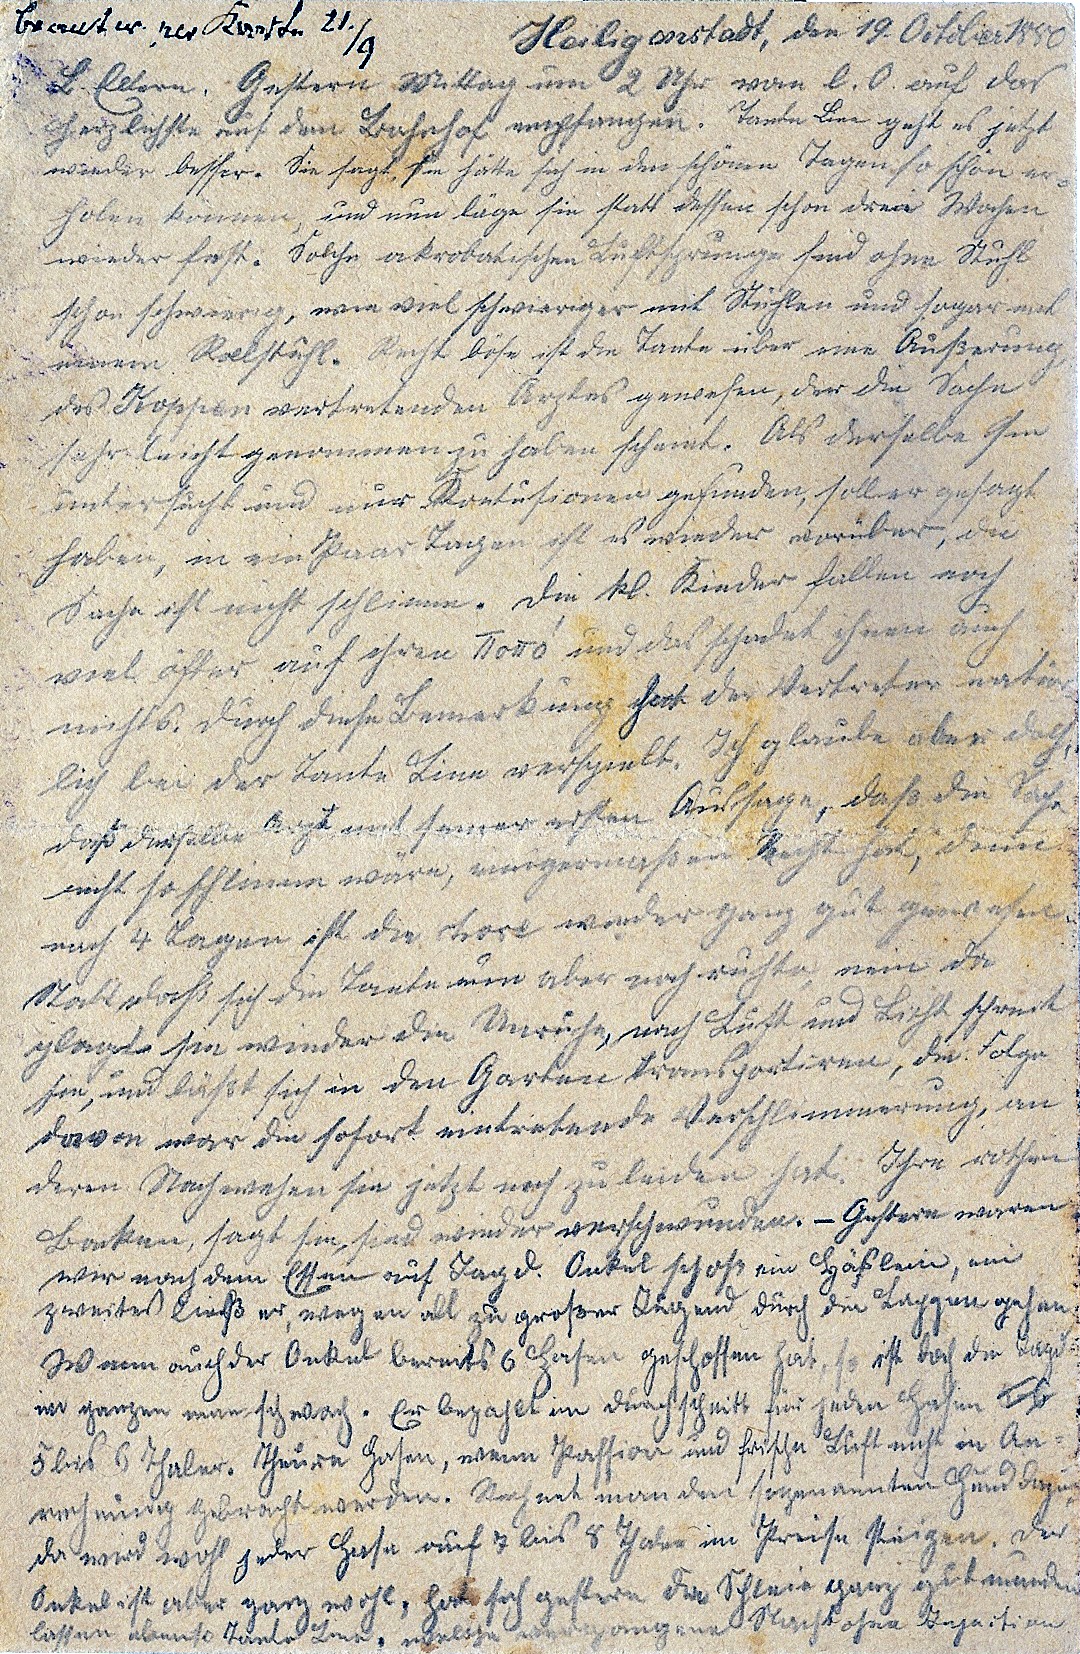 beantw. per Karte 21./9
Heiligenstadt, den 19. October 1880
L. Eltern. Gestern Mittag um 2 Uhr vom l. O. auf das
herzlichste auf dem Bahnhof empfangen. Tante Line geht es jetzt
wieder besser. Sie sagt, sie hätte sich in den schönen Tagen so schön er-
holen können, und nun läge sie statt dessen schon drei Wochen
wieder fest. Solche akrobatischen Luftsprünge sind ohne Stuhl
schon schwierig, wie viel schwieriger mit Stühlen und sogar mit
einem Rollstuhl. Recht böse ist die Tante über eine Äußerung
des Koppen vertretenden Arztes gewesen, der die Sache
sehr leicht genommen zu haben scheint. Als derselbe sie
untersucht und nur Kontusionen gefunden, soll er gesagt
haben, in ein Paar Tagen ist es wieder vorüber, die
Sache ist nicht schlimm. Die kl. Kinder fallen noch
viel öfter auf ihren Ποπό und das schadet ihnen auch
nichts. Durch diese Bemerkung hat der Vertreter natür-
lich bei der Tante Line verspielt. Ich glaube aber doch,
daß derselbe Arzt mit seiner ersten Aussage, daß die Sache
nicht so schlimm wäre, einigermaßen Recht hat, denn
nach 4 Tagen ist die wieder ganz gut gewesen.
Statt daß sich die Tante nun aber noch ruhte, nein da
plagt sie wieder die Unruhe, nach Luft und Licht schreit
sie, und läßt sich in den Garten transportiren, die Folge
davon war die sofort eintretende Verschlimmerung, an
deren Nachwehen sie jetzt noch zu leiden hat. Ihre rothen
Backen, sagt sie, sind wieder verschwunden. – Gestern waren
wir nach dem Essen auf Jagd. Onkel schoß ein Häslein, ein
zweites ließ er, wegen all zu großer Jugend durch die Lappen gehen.
Wenn auch der Onkel bereits 6 Hasen geschossen hat, so ist doch die Jagd
im ganzen man schwach. Er bezahlt im Durchschnitt für jeden Hasen
5 bis 6 Thaler. Theure Hasen, wenn Passion und frische Luft nicht in An-
rechnung gebracht werden. Rechnet man den sogenannten Hund dazu,
da wird wohl jeder Hase auf 7 bis 8 Thaler im Preise steigen. Der
Onkel ist aber ganz wohl, hat sich gestern die Schleie ganz gut munden
lassen ebenso Tante Line, welche vergangene Nacht ohne